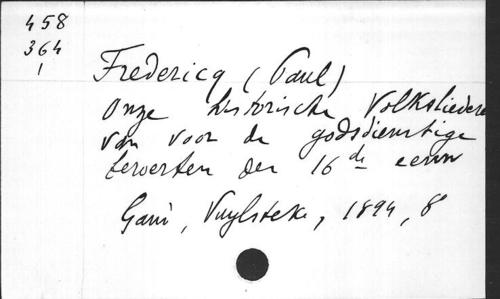 458
364
1
Fredericq (Paul)
Onze historische Volksliederen
van voor de godsdienstige
beroerten der 16de eeuw
Gand, Vuylsteke, 1894, 8°